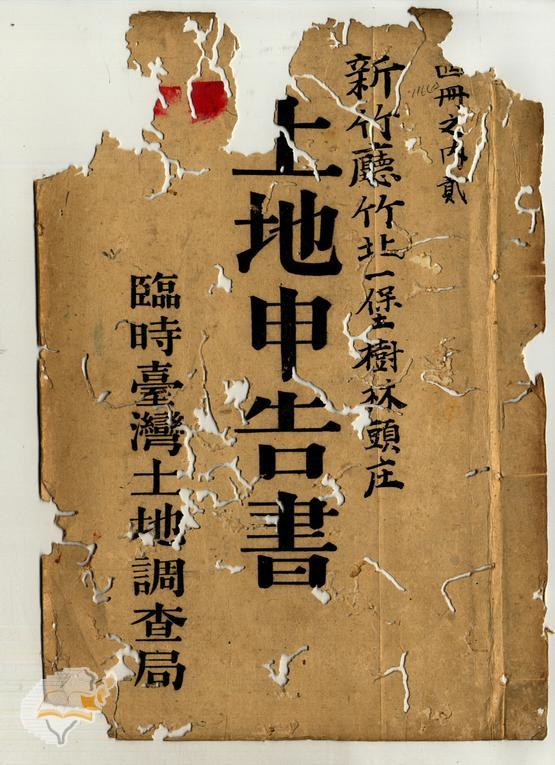 四冊之內貳
新竹廳竹北一堡樹林頭庄
土地申告書
臨時臺灣土地調查局